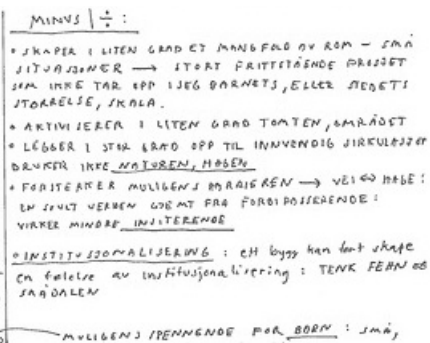 MINUS | ÷ :
• SKAPER I LITEN GRAD ET MANGFOLD AV ROM – SMÅ
SITUASJONER → STORT FRITTSTÅENDE PROSJEKT
SOM IKKE TAR OPP I SEG BARNETS, ELLER STEDETS
STØRRELSE, SKALA.
• AKTIVISERER I LITEN GRAD TOMTEN, OMRÅDET
• LEGGER I STOR GRAD OPP TIL INNVENDIG SIRKULASJON
BRUKER IKKE NATUREN, HAGEN
• FORSTERKER MULIGENS BARRIEREN → VEI ⇔ HAGE :
EN VERDEN GJEMT FRA FORBIPASSERENDE :
VIRKER MINDRE INVITERENDE
• INSTITUSJONALISERING : ett bygg kan fort skape
en følelse av institusjonalisering : TENK FEHN OG
SKÅDALEN
MULIGENS SPENNENDE FOR BARN : SMÅ,